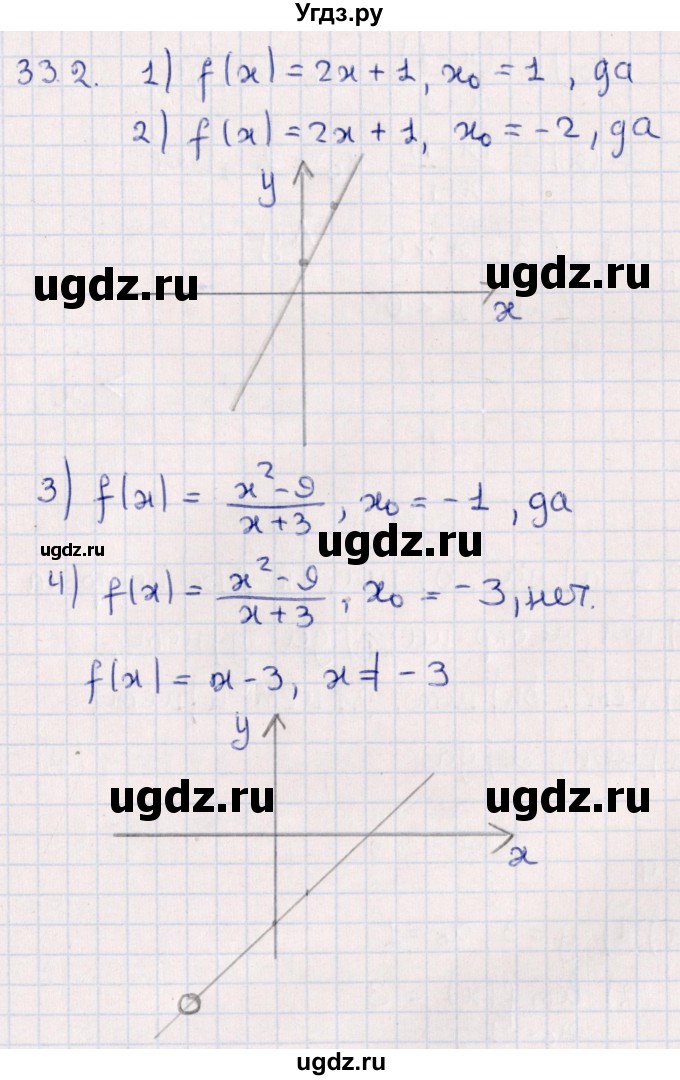 Угдз.ру
33.2. 1) f(x) = 2x + 1, x₀ = 1, да
2) f(x) = 2x + 1, x₀ = -2, да
y
ugdz.ru ugdz.ru
x
3) f(x) = (x² - 9)/(x + 3), x₀ = -1, да
ugdz.ru ugdz.ru
4) f(x) = (x² - 9)/(x + 3), x₀ = -3, нет.
f(x) = x - 3, x ≠ -3
y
ugdz.ru ugdz.ru
x
ugdz.ru